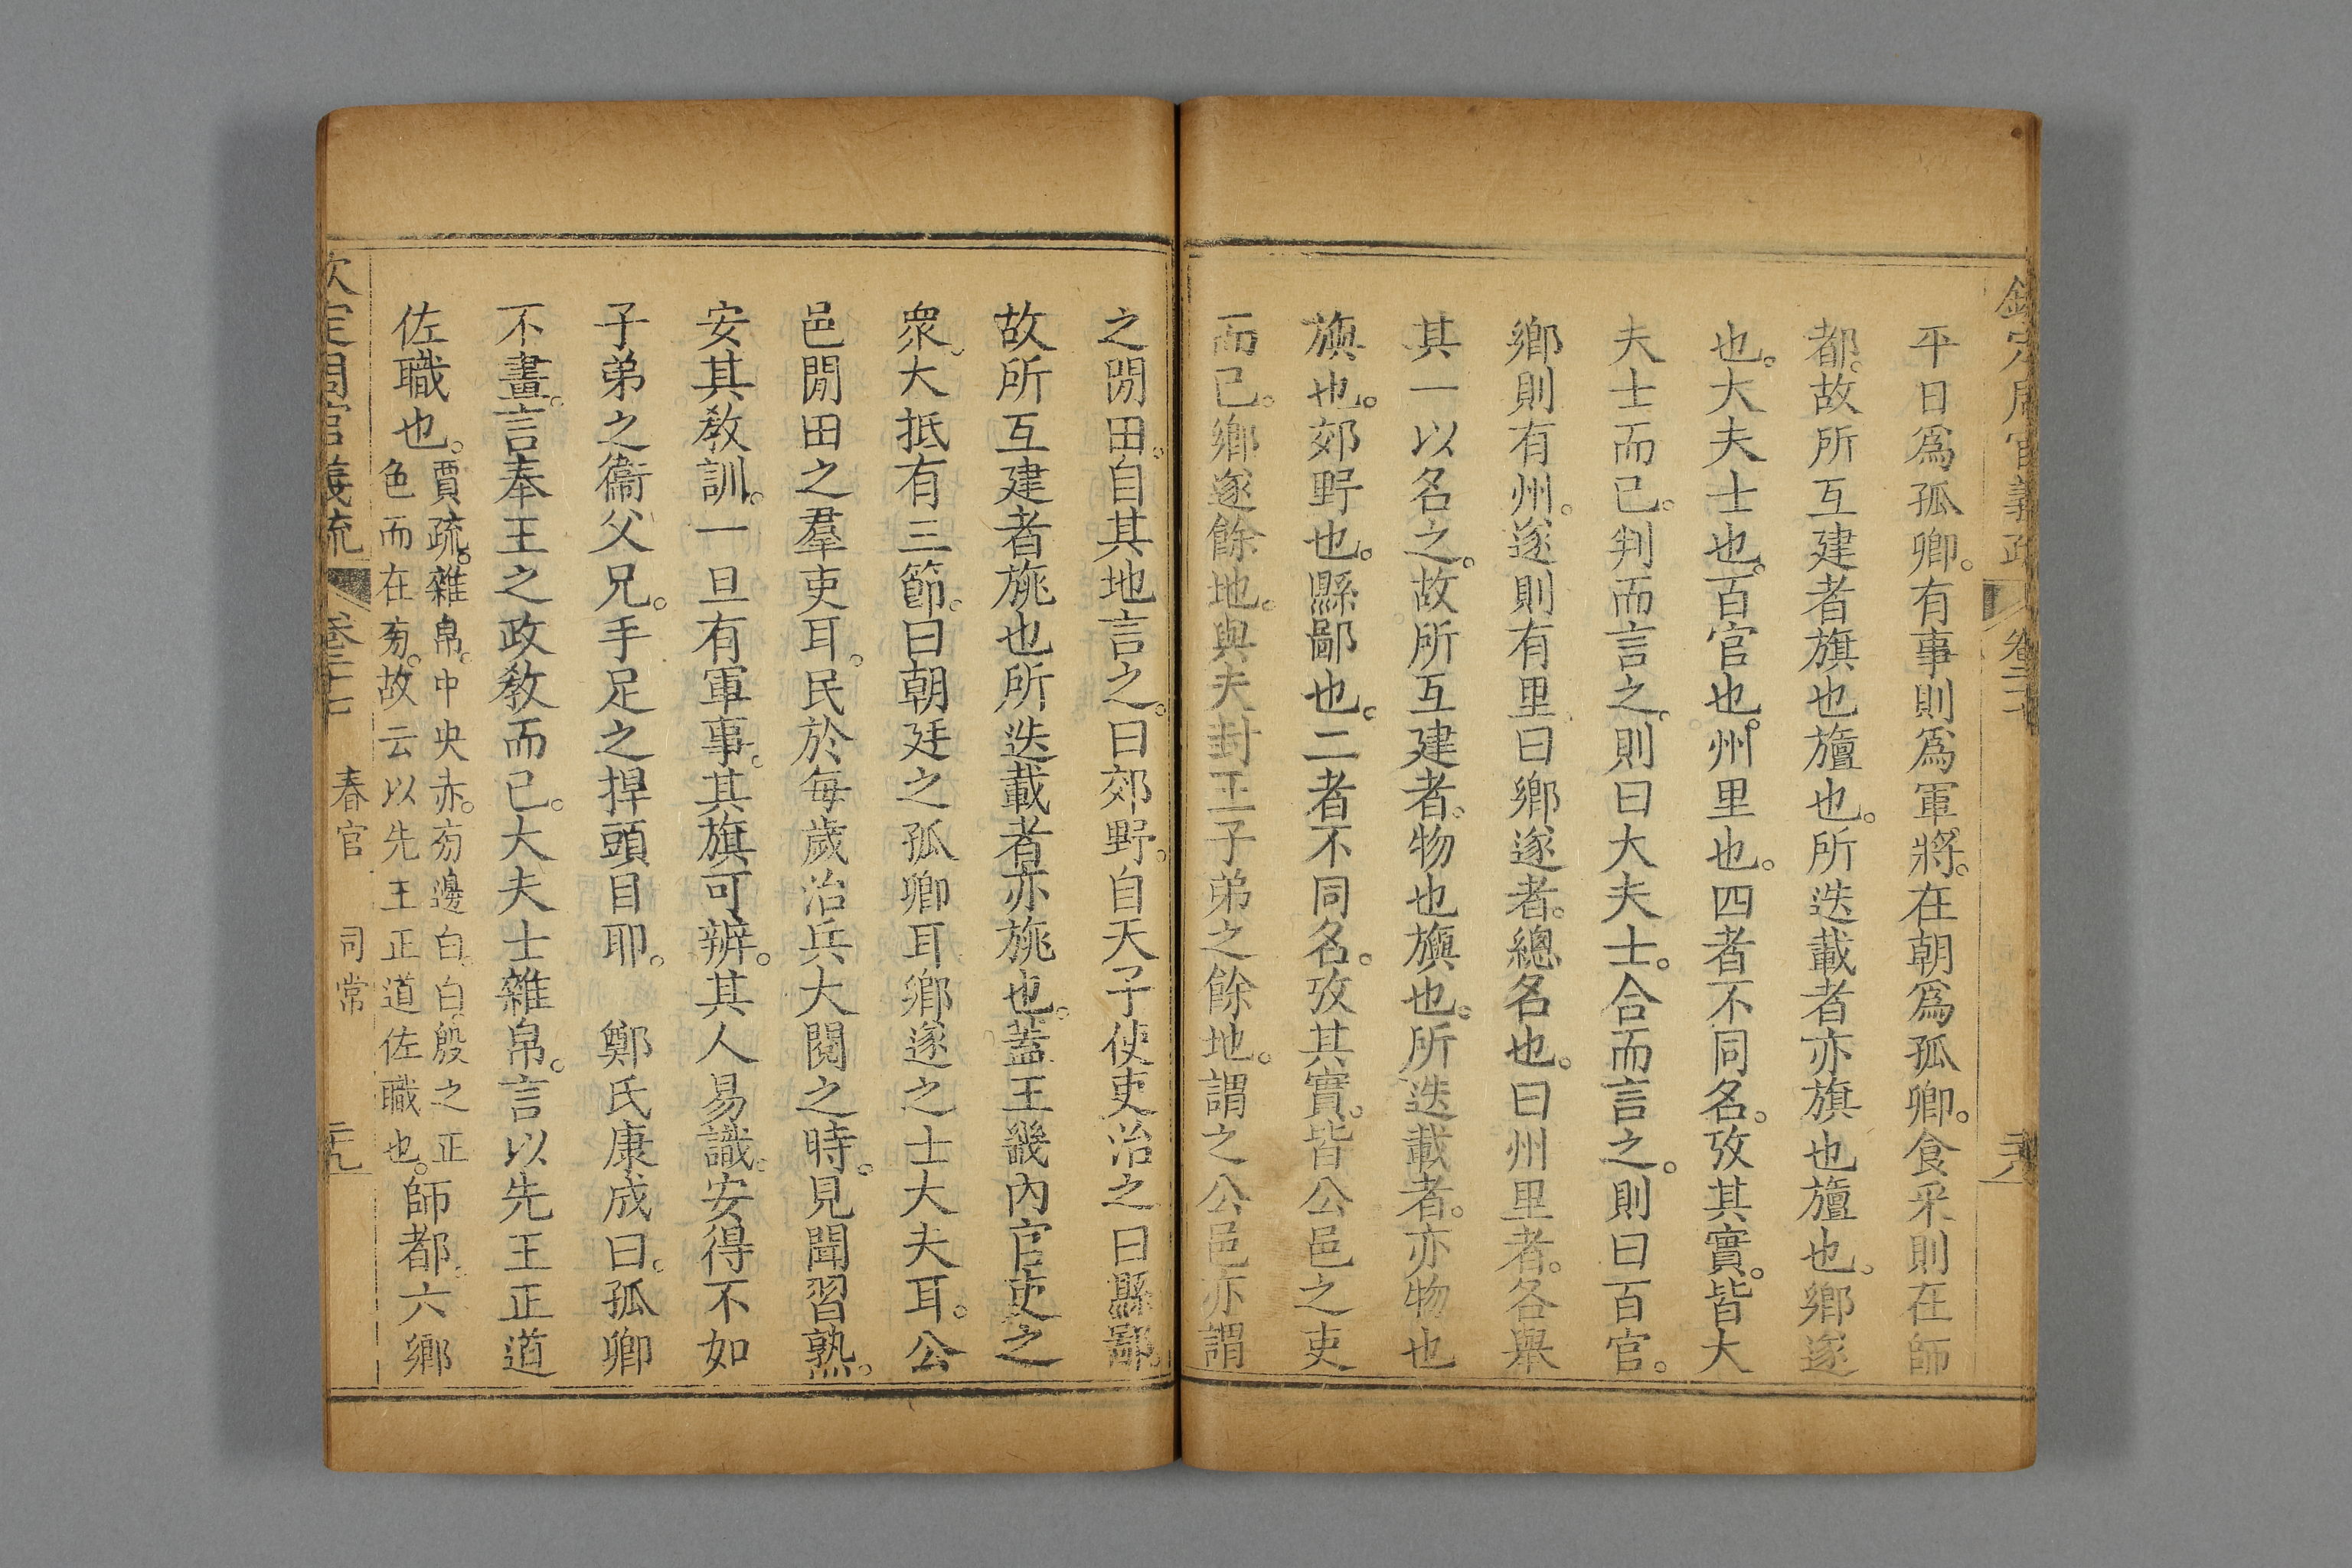 欽定周官義疏 卷二十七
平日爲孤卿。有事則爲軍將。在朝爲孤卿。食采則在師
都。故所互建者旗也旜也。所迭載者亦旗也旜也。鄉遂
也。大夫士也。百官也。州里也。四者不同名。攷其實。皆大
夫士而已。判而言之。則曰大夫士。合而言之。則曰百官。
鄉則有州。遂則有里。曰鄉遂者。總名也。曰州里者。各舉
其一以名之。故所互建者。物也旟也。所迭載者。亦物也
旟也。郊野也。縣鄙也。二者不同名。攷其實。皆公邑之吏
而已。鄉遂餘地。與夫封王子弟之餘地。謂之公邑亦謂
之閒田。自其地言之。曰郊野。自天子使吏治之曰縣鄙。
故所互建者旐也所迭載者亦旐也。蓋王畿內官吏之
衆。大抵有三節。曰朝廷之孤卿耳鄉遂之士大夫耳。公
邑閒田之羣吏耳。民於每歲治兵大閱之時。見聞習熟。
安其教訓。一旦有軍事。其旗可辨。其人易識。安得不如
子弟之衞父兄。手足之捍頭目耶。 鄭氏康成曰。孤卿
不畫。言奉王之政教而已。大夫士雜帛。言以先王正道
佐職也。
賈疏。雜帛。中央赤。旁邊白。白殷之正
色而在旁。故云以先王正道佐職也。
師都。六鄉
欽定周官義疏 卷二十七 春官 司常 二十九